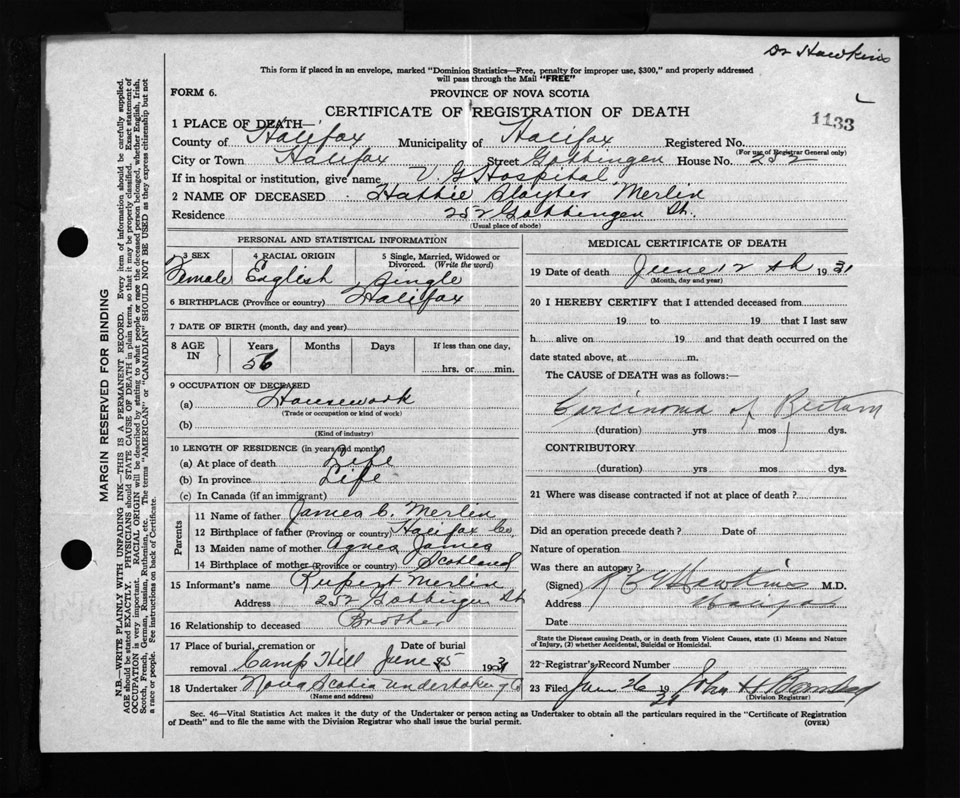 Dr Hawkins
This form if placed in an envelope, marked "Dominion Statistics—Free, penalty for improper use, $300," and properly addressed
will pass through the Mail "FREE"
FORM 6.
PROVINCE OF NOVA SCOTIA
CERTIFICATE OF REGISTRATION OF DEATH
1133
1 PLACE OF DEATH—
County of Halifax Municipality of Halifax Registered No.
(For use of Registrar General only)
City or Town Halifax Street Gottingen House No. 252
If in hospital or institution, give name V G Hospital
2 NAME OF DECEASED Hattie Merlin
Residence 252 Gottingen St.
(Usual place of abode)
PERSONAL AND STATISTICAL INFORMATION
3 SEX 4 RACIAL ORIGIN 5 Single, Married, Widowed or
Divorced. (Write the word)
Female English Single
6 BIRTHPLACE (Province or country) Halifax
7 DATE OF BIRTH (month, day and year)
8 AGE IN Years Months Days If less than one day,
56 hrs. or min.
9 OCCUPATION OF DECEASED
(a) Housework
(Trade or occupation or kind of work)
(b)
(Kind of industry)
10 LENGTH OF RESIDENCE (in years and months)
(a) At place of death Life
(b) In province Life
(c) In Canada (if an immigrant)
Parents
11 Name of father James C. Merlin
12 Birthplace of father (Province or country) Halifax Co.
13 Maiden name of mother Agnes James
14 Birthplace of mother (Province or country) Scotland
15 Informant's name Rupert Merlin
Address 252 Gottingen St
16 Relationship to deceased Brother
17 Place of burial, cremation or Date of burial
removal Camp Hill June 193
18 Undertaker Nova Scotia Undertaking Co
(Name and address)
MEDICAL CERTIFICATE OF DEATH
19 Date of death June 12th 1931
(Month, day and year)
20 I HEREBY CERTIFY that I attended deceased from
19 to 19 that I last saw
h alive on 19 and that death occurred on the
date stated above, at m.
The CAUSE of DEATH was as follows:—
Carcinoma of Rectum
(duration) yrs mos dys.
CONTRIBUTORY
(duration) yrs mos dys.
21 Where was disease contracted if not at place of death?
Did an operation precede death? Date of
Nature of operation
Was there an autopsy?
(Signed) Hawkins M.D.
Address Halifax
Date
State the Disease causing Death, or in death from Violent Causes, state (1) Means and Nature
of Injury, (2) whether Accidental, Suicidal or Homicidal.
22 Registrar's Record Number
23 Filed 26 19 John H
(Division Registrar)
Sec. 46—Vital Statistics Act makes it the duty of the Undertaker or person acting as Undertaker to obtain all the particulars required in the "Certificate of Registration
of Death" and to file the same with the Division Registrar who shall issue the burial permit.
(OVER)
MARGIN RESERVED FOR BINDING
N.B.—WRITE PLAINLY WITH UNFADING INK—THIS IS A PERMANENT RECORD. Every item of information should be carefully supplied.
AGE should be stated EXACTLY. PHYSICIANS should STATE CAUSE OF DEATH in plain terms, so that it may be properly classified. Exact statement of
OCCUPATION is very important. RACIAL ORIGIN will be described by stating to what people or race the deceased person belonged, whether English, Irish,
Scotch, French, German, Russian, Ruthenian, etc. The terms "AMERICAN" or "CANADIAN" SHOULD NOT BE USED as they express citizenship but not
a race or people. See instructions on back of Certificate.